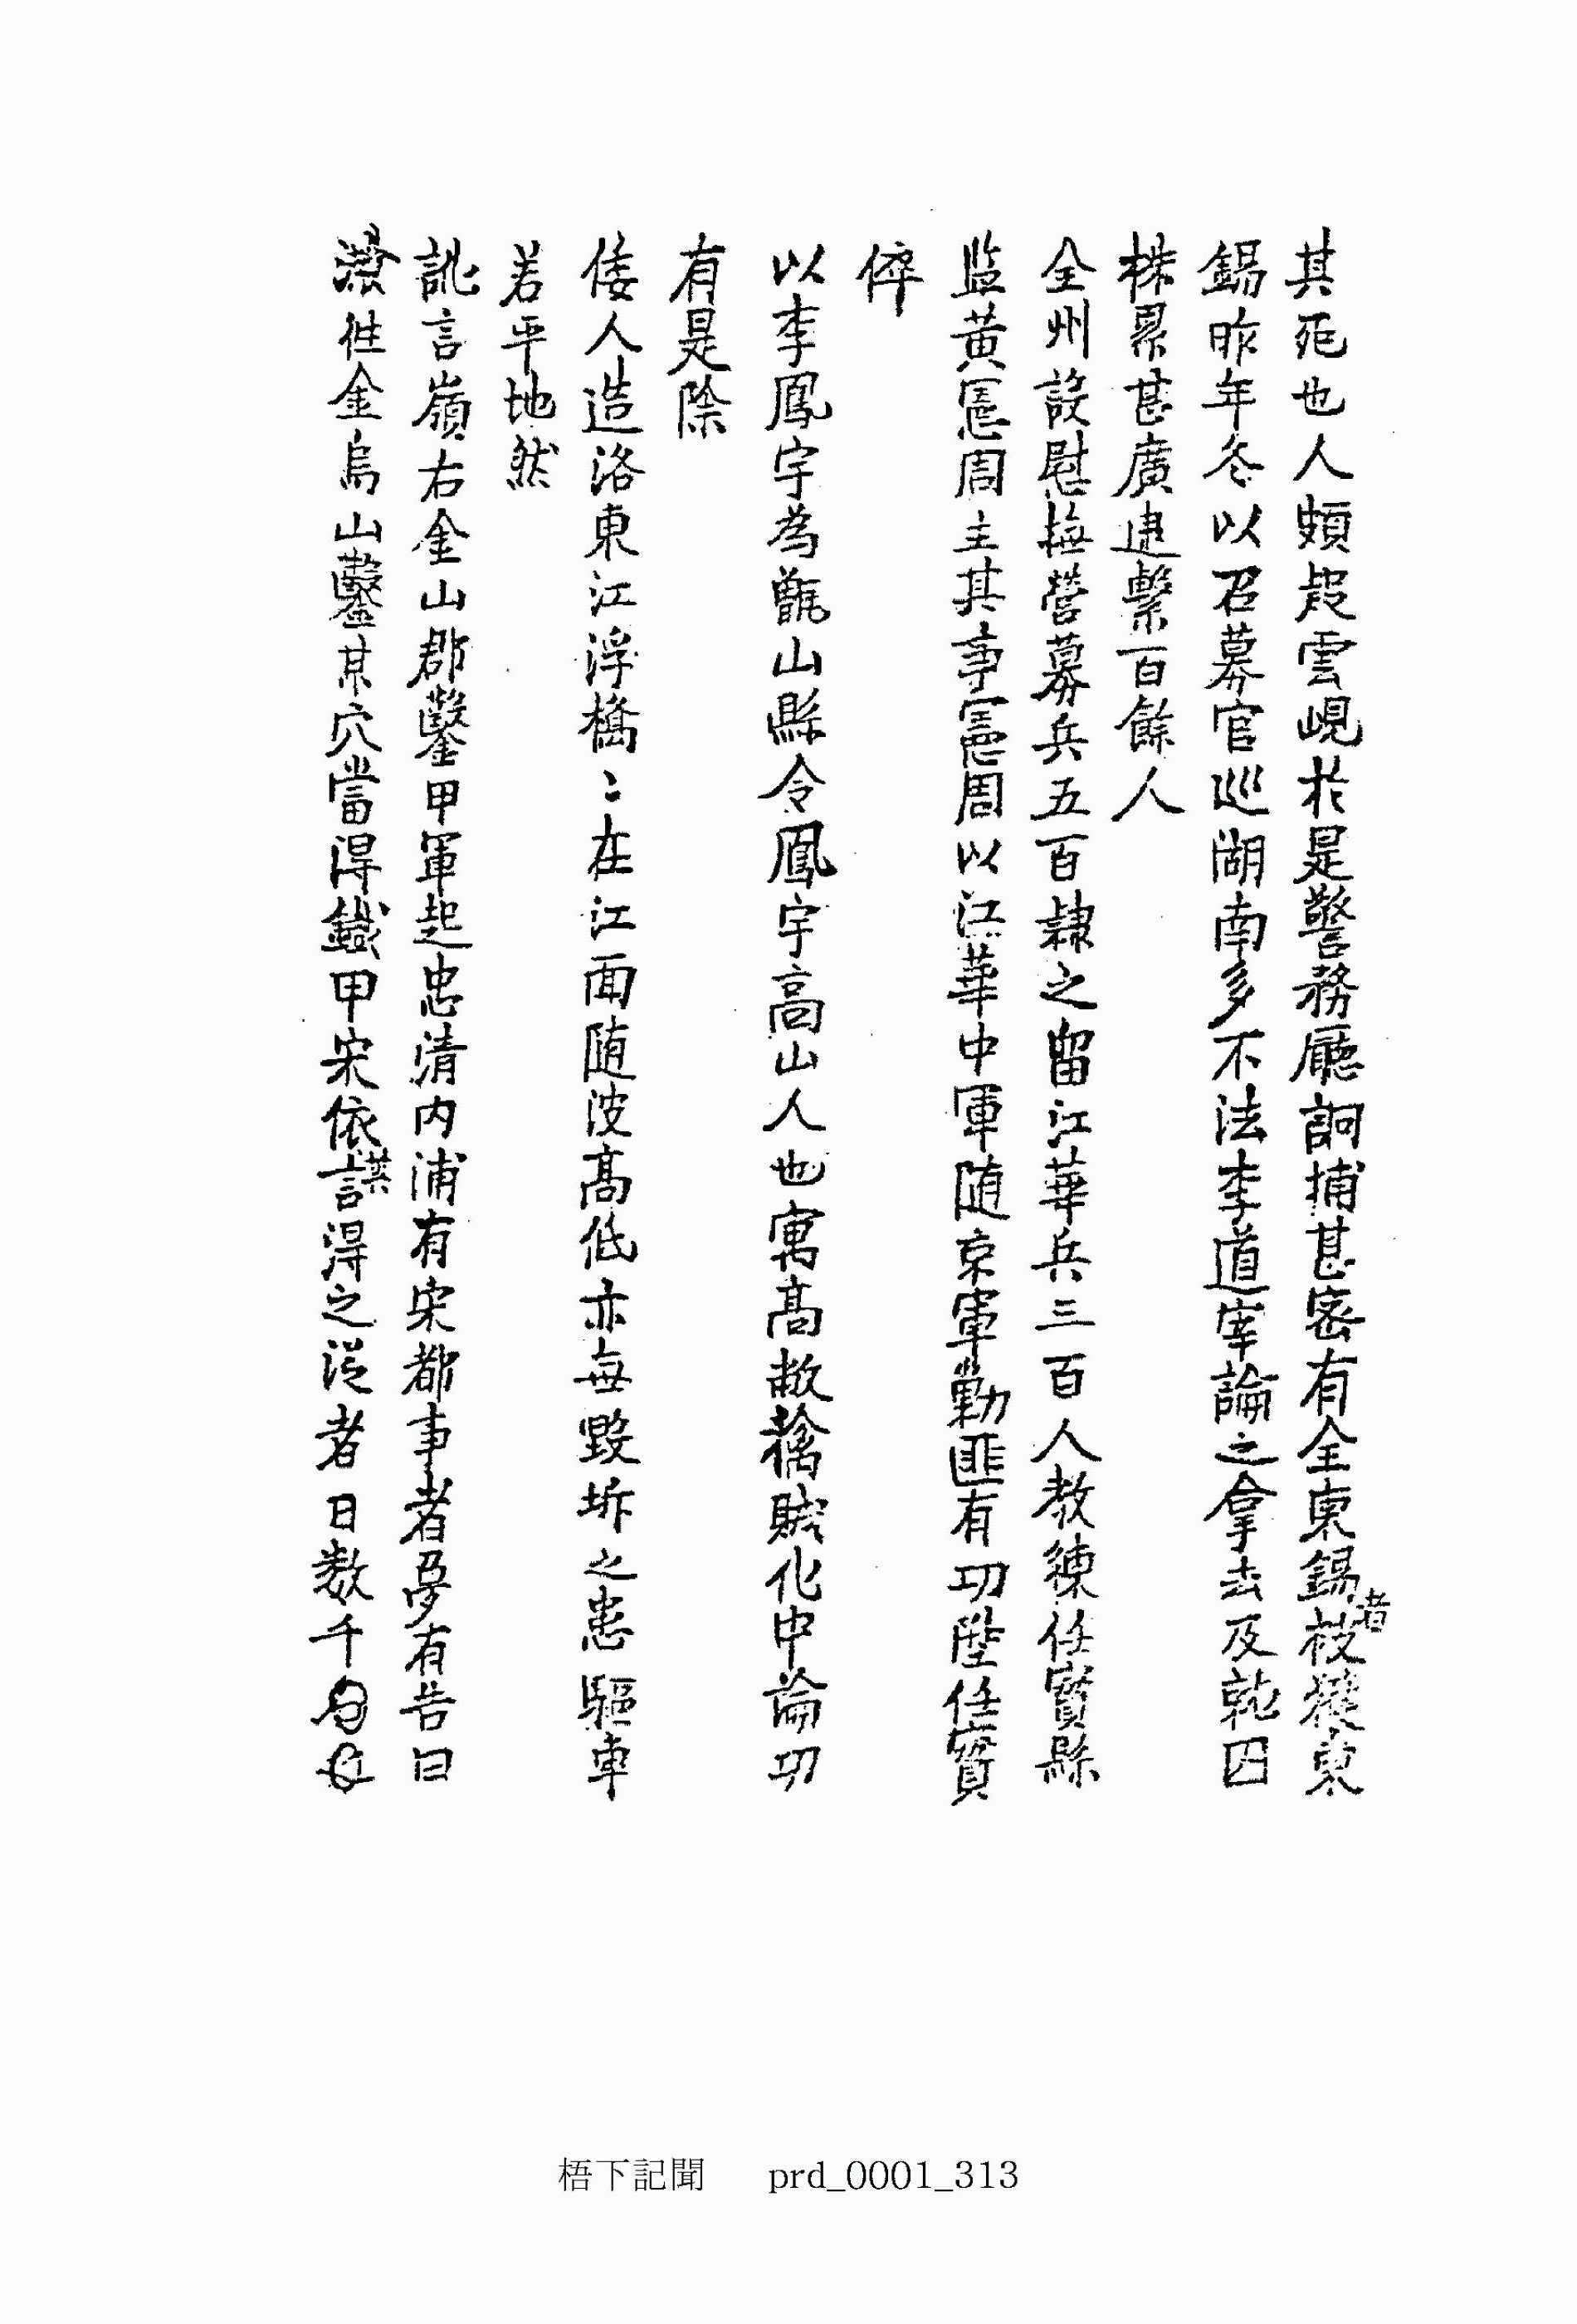 其死也人頗疑雲峴於是警務廳詗捕甚密有全東錫者被獲東
錫昨年冬以召募官巡湖南多不法李道宰論之拿去及就囚
株累甚廣逮繫百餘人
全州設慰撫營募兵五百隷之留江華兵三百人教練任實縣
監黃憲周主其事憲周以江華中軍随京軍勦匪有功陞任實
倅
以李鳳宇為甑山縣令鳳宇高山人也寓高敞擒賊化中論功
有是除
倭人造洛東江浮橋〻在江面随波髙低亦無毀坼之患驅車
若平地然
訛言嶺右金山郡鑿甲軍起忠清内浦有宋都事者夢有告曰
㴱徃金烏山鑿其穴當得鐵甲宋依其言得之從者日数千